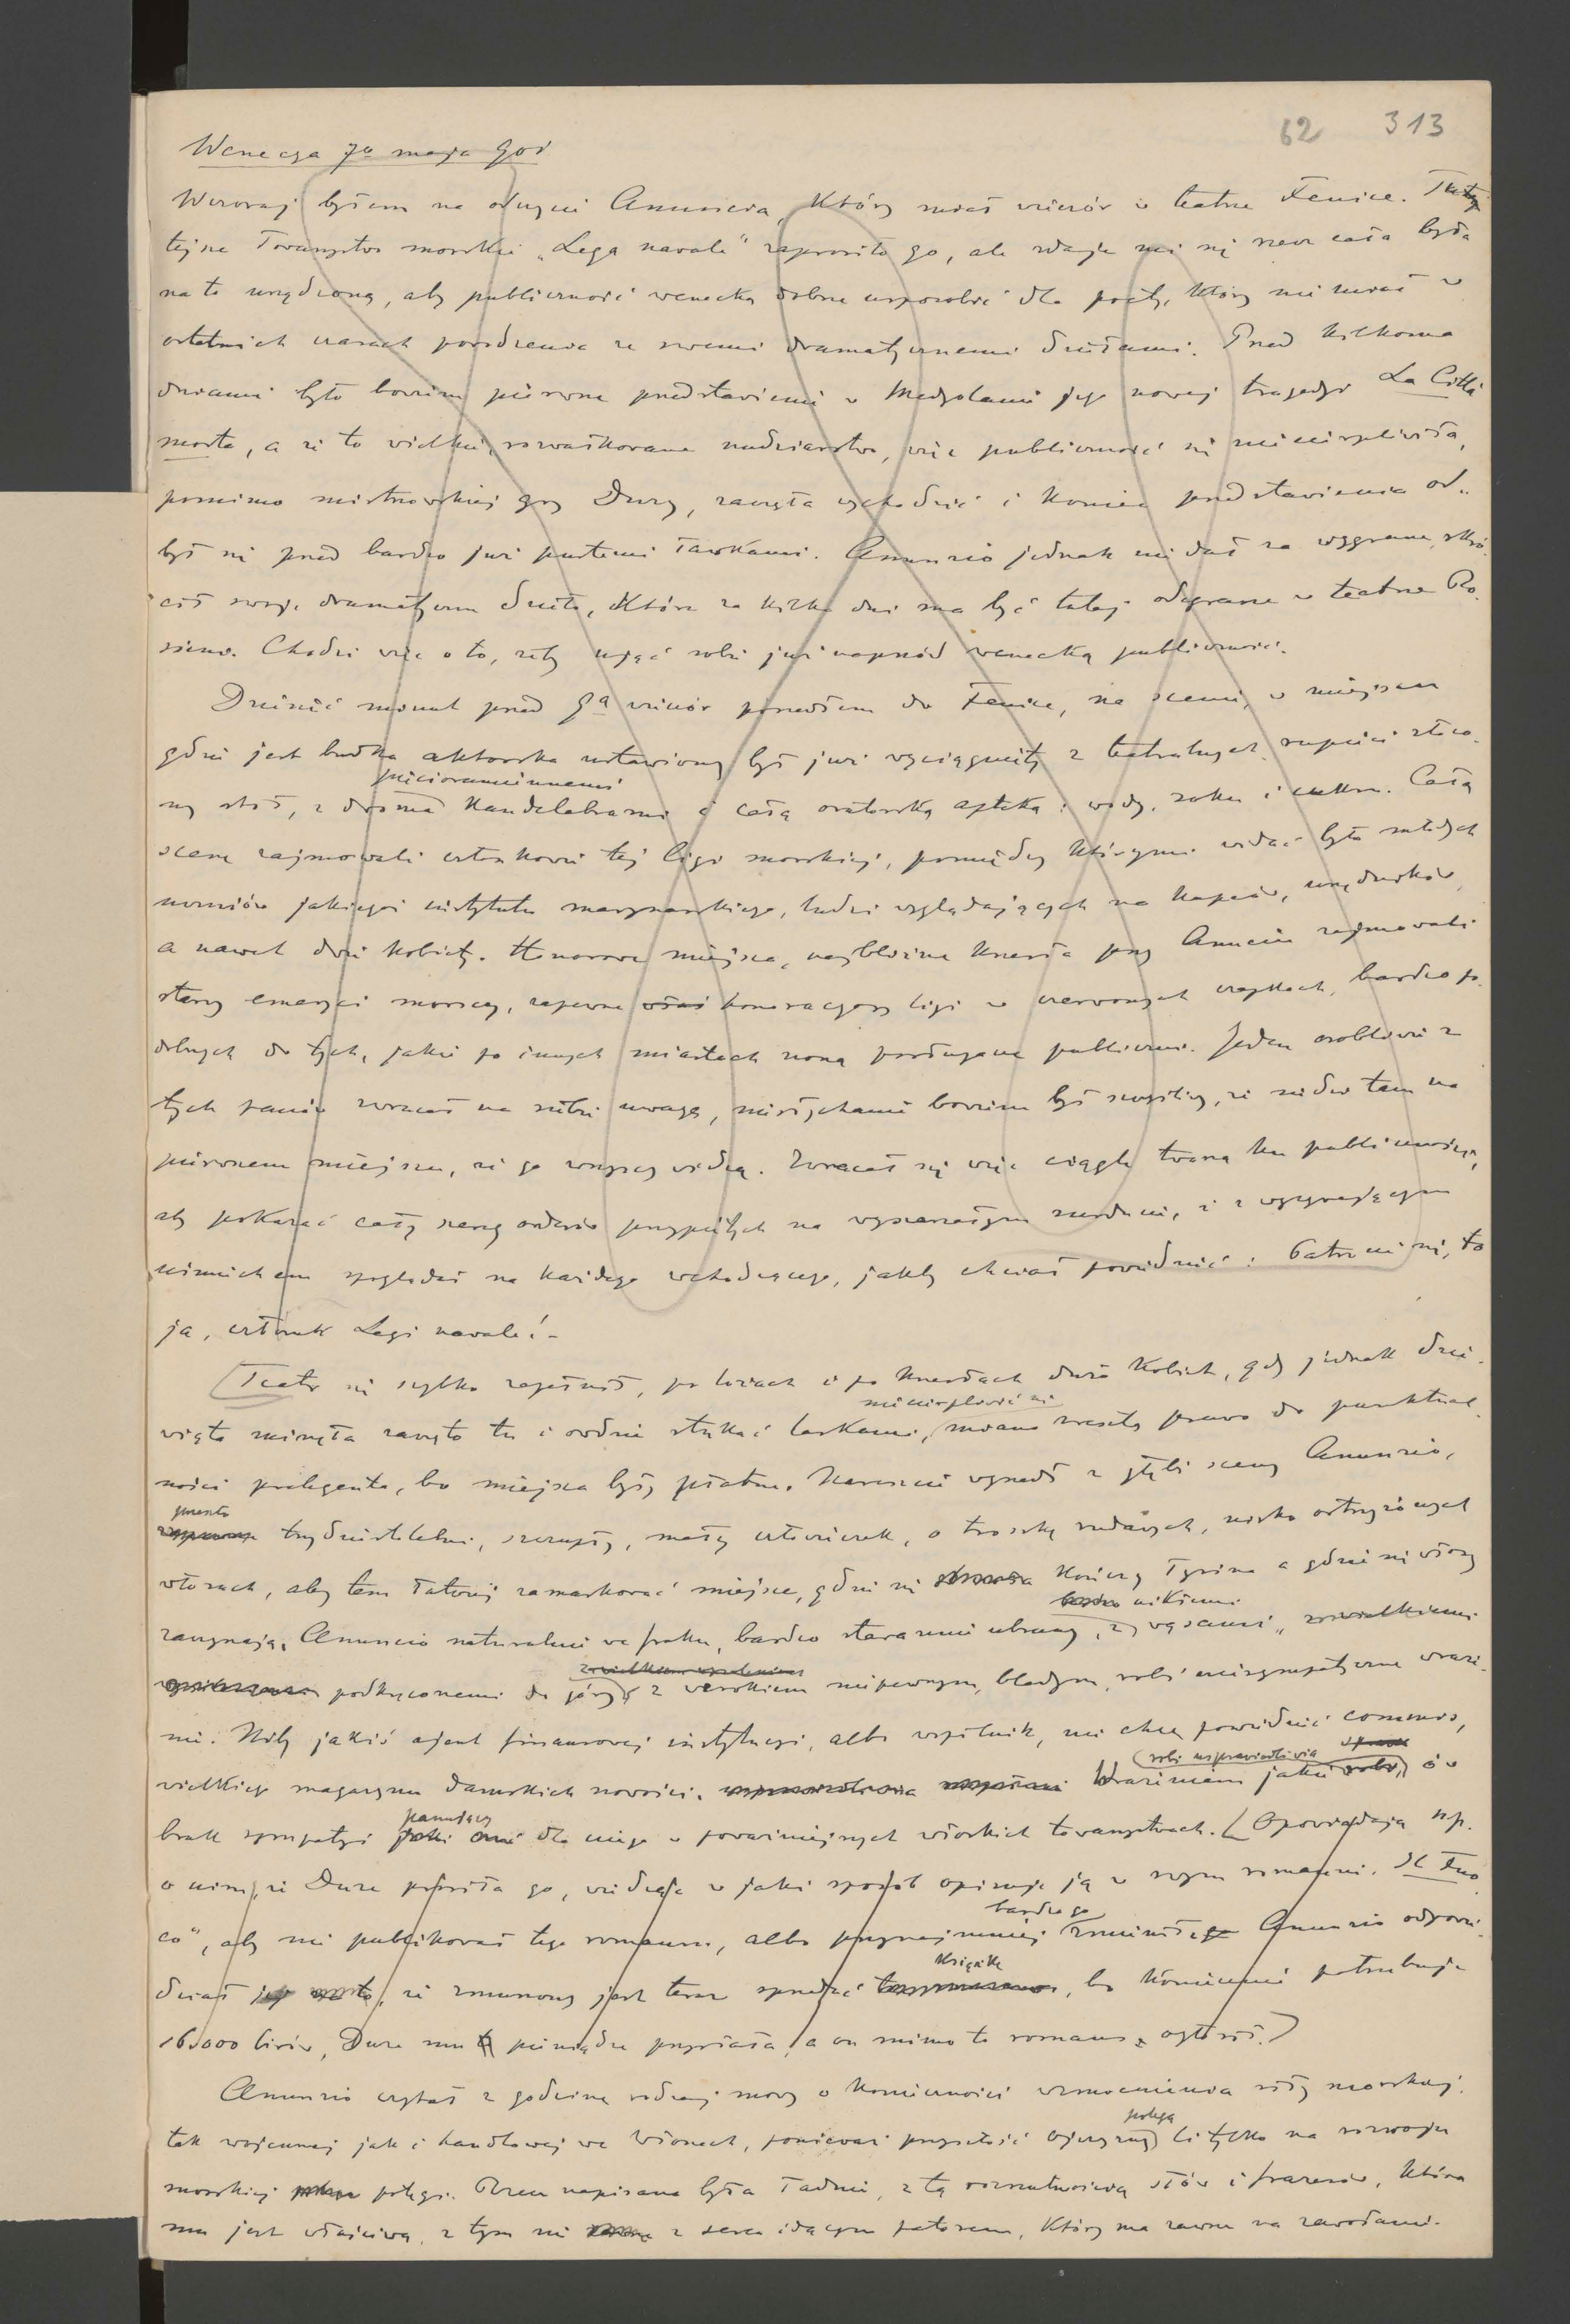 62 313
Wenecya 7o maja 901
Wczoraj byłem na odczycie Anuncia, który miał wieczór w teatrze Fenice. Tutej
tejsze Towarzystwo morskie „Lega navale" zaprosiło go, ale zdaje mi się rzecz cała była
na to urządzona, aby publiczność wenecką dobrze usposobić dla poety, który nie miał w
ostatnich czasach powodzenia ze swemi dramatycznemi dziełami. Przed kilkoma
dniami było bowiem pierwsze przedstawienie w Medyolanie jego nowej tragedyi La Città
morta, a że to wielkie, rozwałkowane nudziarstwo, więc publiczność się zniecierpliwiła,
pomimo mistrzowskiej gry Duzy, zaczęła wychodzić i koniec przedstawienia od-
był się przed bardzo już pustemi ławkami. Anunzio jednak nie dał za wygraną, skró-
cił swoje dramatyczne dzieło, które za kilka dni ma być tutaj odegrane w teatrze Ro-
ssiniego. Chodzi więc o to, żeby ująć sobie już naprzód wenecką publiczność.
Dziesięć minut przed 9ą wieczór poszedłem do Fenice, na scenie, w miejscu
gdzie jest budka aktorska ustawiony był już wyciągnięty z teatralnych rupieci złoco-
pięcioramiennemi
ny stół, z dwoma kandelabrami i całą oratorską apteką: wody, soku i cukru. Całą
scenę zajmowali członkowie tej ligi morskiej, pomiędzy którymi widać było młodych
uczniów jakiegoś instytutu marynarskiego, ludzi wyglądających na kupców, urzędników,
a nawet dwie kobiety. Honorowe miejsca, najbliższe krzesła przy Anuncio zajmowali
starzy emeryci morscy, zapewne honoracyorzy ligi w czerwonych czapkach, bardzo po-
dobnych do tych, jakie po innych miastach noszą posługacze publiczni. Jeden osobliwie z
tych panów zwracał na siebie uwagę, niesłychanie bowiem był szczęśliwy, że siedzi tam na
pierwszem miejscu, że go wszyscy widzą. Zwracał się więc ciągle twarzą ku publiczności,
aby pokazać cały szereg orderów przypiętych na wyszarzałym surducie, i z wyzywającym
uśmiechem spoglądał na każdego wchodzącego, jakby chciał powiedzieć: Patrzcie się, to
ja, członek Legi navale!-
Teatr się szybko zapełnił, po lożach i po krzesłach dużo kobiet, gdy jednak dzie-
niecierpliwić się
wiąta minęła zaczęto tu i owdzie stukać laskami, miano zresztą prawo do punktual-
ności prelegenta, bo miejsca były płatne. Nareszcie wyszedł z głębi sceny Anunzio,
przeszło
trzydziestoletni, szczupły, mały człowieczek, o troszkę rudawych, nisko ostrzyżonych
włosach, aby tem łatwiej zamarkować miejsce, gdzie się kończy łysina a gdzie się włosy
nikiemi
zaczynają. Anuncio naturalnie we fraku, bardzo starannie ubrany, z wąsami,
podkręconemi do góry, z wzrokiem niepewnym, bladym, robi niesympatyczne wraże-
nie. Niby jakiś ajent finansowej instytucyi, albo wspólnik, nie chcę powiedzieć commis,
robi usprawiedliwia
wielkiego magazynu damskich nowości. Wrażeniem jakie ów
panujący
brak sympatyi dla niego w poważniejszych włoskich towarzystwach. (Opowiadają np.
o nim, że Duze prosiła go, widząc w jaki sposób opisuje ją w swym romansie „Il Fuo-
bardzo go
co", aby nie publikował tego romansu, albo przynajmniej zmienił. Anunzio odpowie-
książkę
dział jej na to, że zmuszony jest teraz sprzedać, bo koniecznie potrzebuje
16.000 lirów, Duze mu pieniądze przysłała, a on mimo to romans ogłosił.)
Anunzio czytał z godzinę rodzaj mowy o konieczności wzmocnienia siły morskiej,
potęga
tak wojennej jak i handlowej we Włoszech, ponieważ przyszłość ojczyzny li tylko na rozwoju
morskiej potęgi. Rzecz napisana była ładnie, z tą rozrzutnością słów i frazesów, która
mu jest właściwą, z tym nie z serca idącym patosem, który ma zawsze na zawołanie.